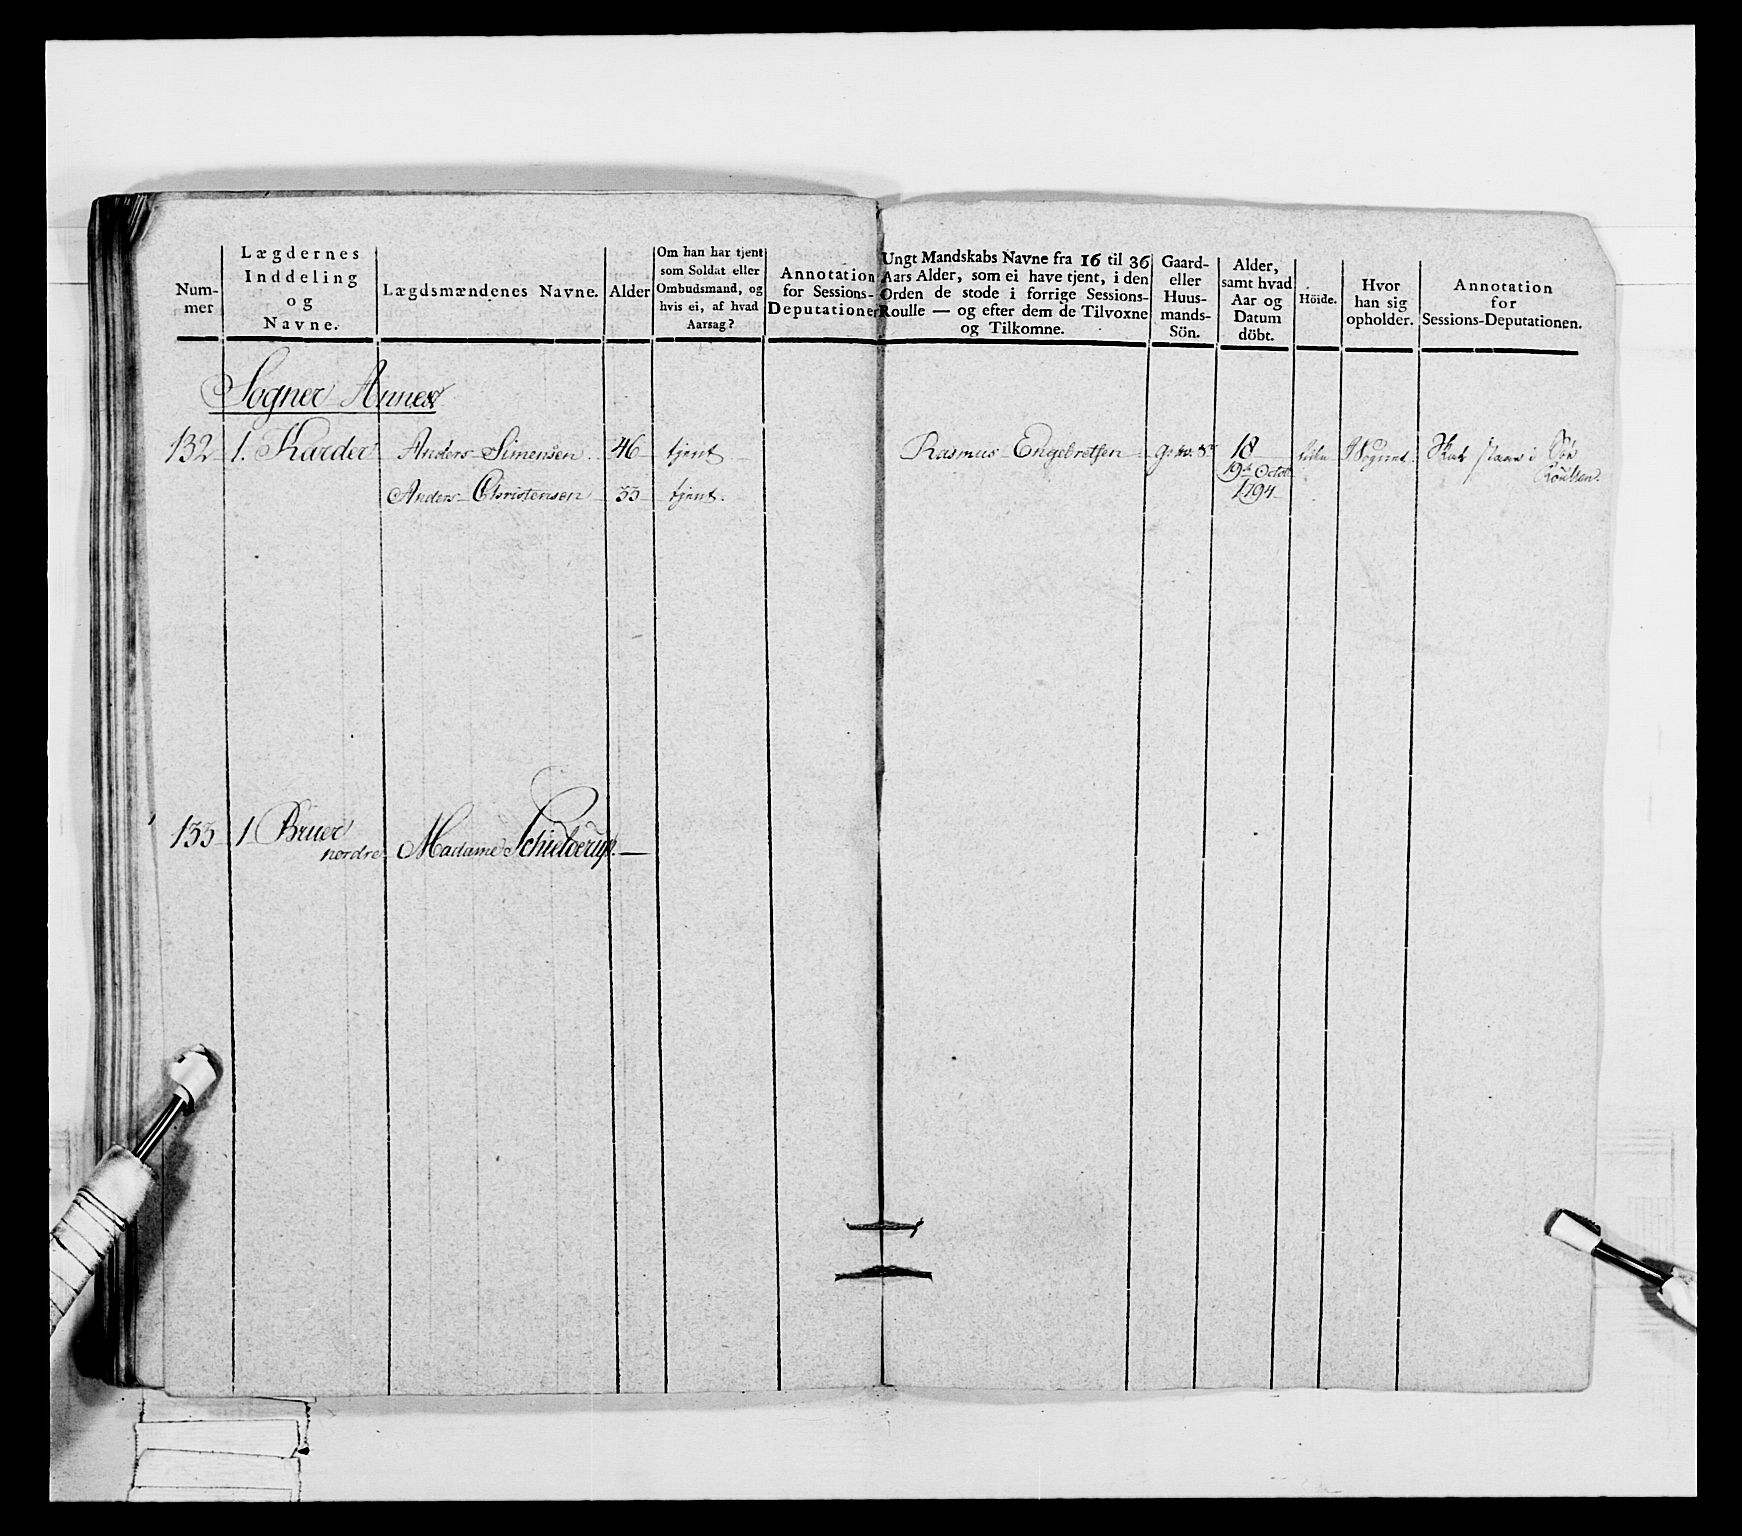 Num-
mer
Lægdernes
Inddeling
og
Navne.
Lægdsmændenes Navne.
Alder
Om han har tjent
som Soldat eller
Ombudsmand, og
hvis ei, af hvad
Aarsag?
Annotation
for Sessions-
Deputationen
Ungt Mandskabs Navne fra 16 til 36
Aars Alder, som ei have tjent, i den
Orden de stode i forrige Sessions-
Roulle — og efter dem de Tilvoxne
og Tilkomne.
Gaard-
eller
Huus-
mands-
Sön.
Alder,
samt hvad
Aar og
Datum
döbt.
Höide.
Hvor
han sig
opholder.
Annotation
for
Sessions-Deputationen.
Sogner Annex
132 1. Karder Anders Simensen. 46 tjent Rasmus Engebretsen 18 Skal staae i Söe
19de Octob Roullen.
Anders Christensen 33 tjent. 1794
133 1 Bruer
nordre Madame Schielderup. —